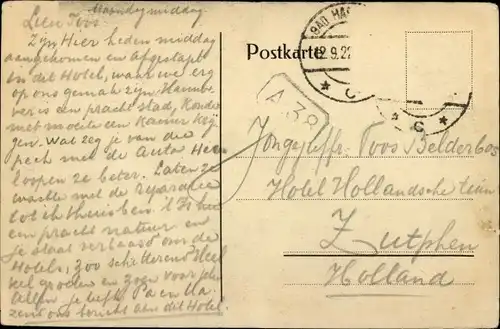 Maandag middag
Lieve Toos.
Zijn Hier heden middag
aangekomen en afgestapt
in dit Hotel, waar we erg
op ons gemak zijn. Hanno-
ver is een pracht stad, konden
met moeite een kamer krij
gen. Wat zeg je van die
pech met de auto Hier
loopen ze beter. Laten ze
wachten met de reparatie
tot ik thuis ben. 't Is hier
een pracht natuur en
je staat verbaasd om de
Hotels, zoo schitterend. Veel
groeten en zoen voor je
Allen je liefh. Pa en Ma.
zend ons bericht aan dit Hotel.
Postkarte
BAD HA
12.9.22
C
C
A 38
Jongejuffr. Toos Belderbos
Hotel Hollandsche Tuin
Zutphen
Holland